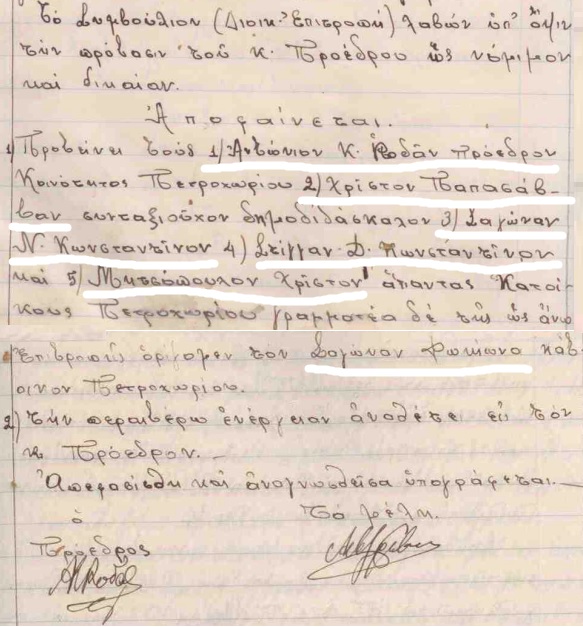 Τὸ Συμβούλιον (Διοικ. Ἐπιτροπὴ) λαβὼν ὑπ' ὄψιν
τὴν πρότασιν τοῦ κ. Προέδρου ὡς νόμιμον
καὶ δικαίαν.
Ἀποφαίνεται.
1) Προτείνει τοὺς 1) Ἀντώνιον Κ. Ροδᾶν πρόεδρον
Κοινότητος Πετροχωρίου 2) Χρῖστον Παπασάβ-
βαν συνταξιοῦχον δημοδιδάσκαλον 3) Σαγώναν
Ν. Κωνσταντῖνον 4) Στίγγαν Δ. Κωνσταντῖνον
καὶ 5) Μητσόπουλον Χρῖστον ἅπαντας Κατοί-
κους Πετροχωρίου γραμματέα δὲ τῆς ὡς ἄνω
Ἐπιτροπῆς ὁρίζομεν τὸν Σαγώναν Φωκίωνα κάτ-
οικον Πετροχωρίου.
2) Τὴν περαιτέρω ἐνέργειαν ἀναθέτει εἰς τὸν
κ. Πρόεδρον.—
Ἀπεφασίσθη καὶ ἀναγνωσθεῖσα ὑπογράφεται.—
ὁ Τὰ μέλη.
Πρόεδρος
ΑΚΡοδᾶς